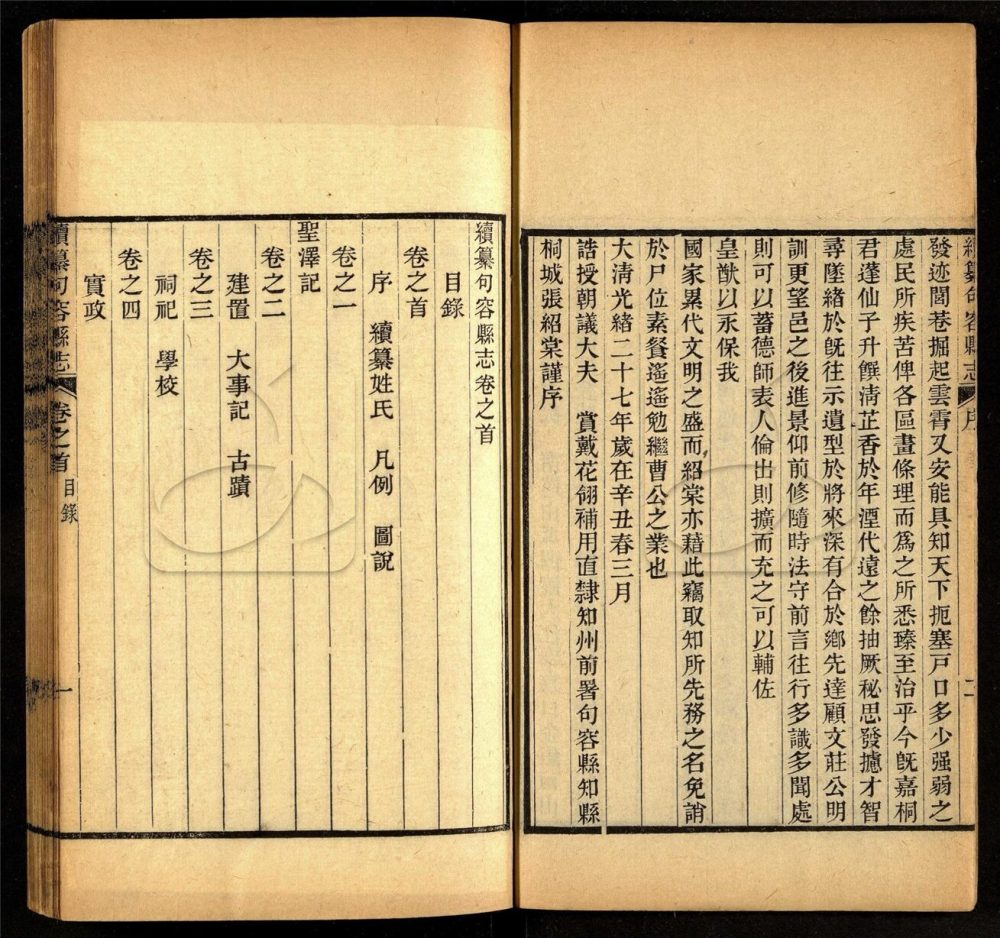 續纂句容縣志 序 二
發迹閭巷掘起雲霄又安能具知天下扼塞戸口多少强弱之
處民所疾苦俾各區畫條理而爲之所悉臻至治乎今旣嘉桐
君蓬仙子升饌淸芷香於年湮代遠之餘抽厥秘思發攄才智
尋墜緒於旣往示遺型於將來深有合於鄉先達顧文莊公明
訓更望邑之後進景仰前修隨時法守前言往行多識多聞處
則可以蓄德師表人倫出則擴而充之可以輔佐
皇猷以永保我
國家累代文明之盛而紹棠亦藉此竊取知所先務之名免誚
於尸位素餐遙遙勉繼曹公之業也
大淸光緒二十七年歲在辛丑春三月
誥授朝議大夫 賞戴花翎補用直隸知州前署句容縣知縣
桐城張紹棠謹序
續纂句容縣志卷之首
目錄
卷之首
序 續纂姓氏 凡例 圖說
卷之一
聖澤記
卷之二
建置 大事記 古蹟
卷之三
祠祀 學校
卷之四
實政
續纂句容縣志 卷之首 目錄 一